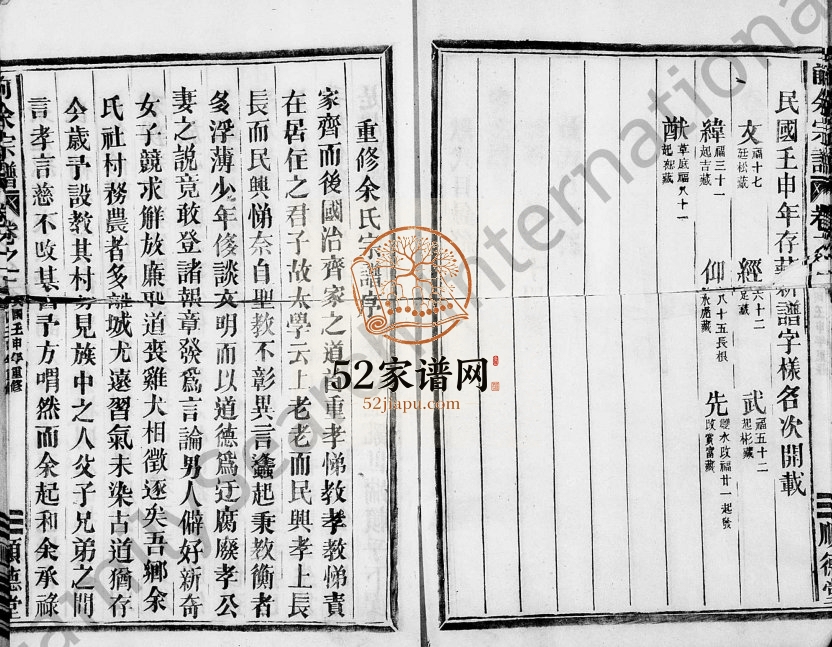 民國壬申年存新譜字樣名次開載
文 福十七 廷松藏
經 六十二 定藏
武 福五十二 起彬藏
緯 福三十一 起吉藏
仰 八十五長根 永應藏
先
猷 草底福八十一 起和藏
順德堂
重修余氏宗譜序
家齊而後國治齊家之道首重孝悌教孝教悌責
在居位之君子故太學云上老老而民興孝上長
長而民興悌奈自聖教不彰異言蠭起秉教衡者
多浮薄少年侈談文明而以道德爲迂腐廢孝公
妻之說竟敢登諸報章發爲言論男人僻好新奇
女子競求解放廉恥道喪雞犬相徵逐矣吾鄉余
氏社村務農者多離城尤遠習氣未染古道猶存
今歲予設教其村見族中之人父子兄弟之間
言孝言慈不改其舊予方喟然而余起和余承祿
余宗譜
卷之一
民國壬申年重修
順德堂
52家谱网
52jiapu.com
familysearch International